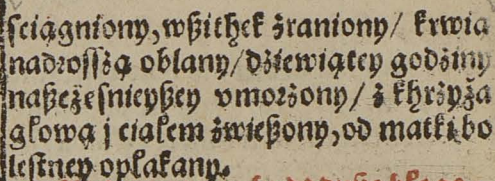 ſciągniony, wßithek zraniony/ krwią
nadroſſzą oblany/ dziewiątey godziny
naßeżeſnieyßey vmorzony/ z khrzyża
głową j ciałem zwießony, od matki bo
leſtney opłakany.